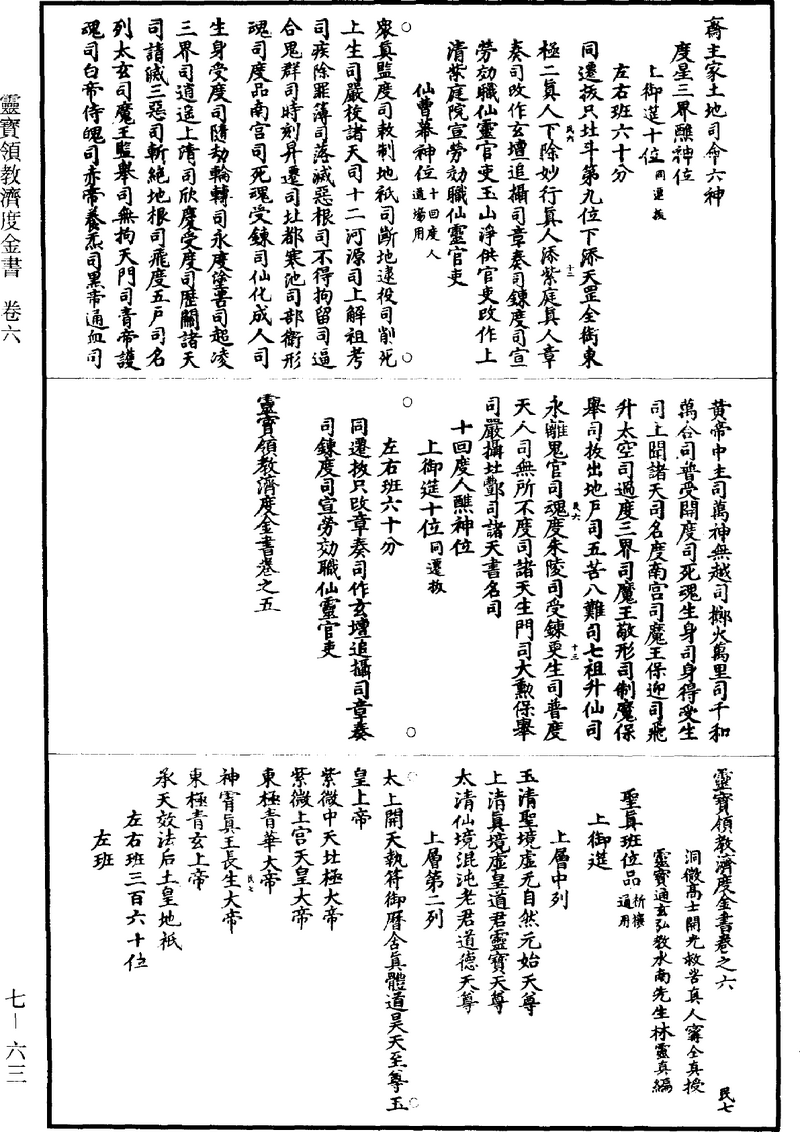 齋主家土地司命六神
度星三界醮神位
上御筵十位同遷拔
左右班六十分
同遷拔只北斗第九位下添天罡全銜東
極二真人下除妙行真人添紫庭真人章
民六
十二
奏司改作玄壇追攝司章奏司鍊度司宣
勞効職仙靈官吏玉山淨供官吏改作上
清紫庭院宣勞効職仙靈官吏
仙曹幕神位十回度人道場用
衆真監度司敕制地祇司斷地逮役司削死
上生司嚴校諸天司十二河源司上解祖考
司疾除罪簿司落滅惡根司不得拘留司逼
合鬼群司時刻昇遷司北都寒池司部衛形
魂司度品南宫司死魂受鍊司仙化成人司
生身受度司隨劫輪轉司永度塗苦司超凌
三界司逍遥上清司欣慶受度司歷關諸天
司諸滅三惡司斬絶地根司飛度五户司名
列太玄司魔王監舉司無拘天門司青帝護
魂司白帝侍魄司赤帝養炁司黑帝通血司
黄帝中主司萬神無越司擲火萬里司千和
萬合司普受開度司死魂生身司身得受生
司上開諸天司名度南宫司魔王保迎司飛
升太空司過度三界司魔王敬形司制魔保
舉司拔出地户司五苦八難司七祖升仙司
民六
十三
永離鬼官司魂度朱陵司受鍊更生司普度
天人司無所不度司諸天生門司大勲保舉
司嚴攝北酆司諸天書名司
十回度人醮神位
上御筵十位同遷拔
左右班六十分
同遷拔只改章奏司作玄壇追攝司章奏
司鍊度司宣勞効職仙靈官吏
靈寶領教濟度金書卷之五
靈寶領教濟度金書卷之六
民七
洞微高士開光救苦真人甯全真授
靈寶通玄弘教水南先生林靈真編
聖真班位品祈禳通用
上御筵
上層中列
玉清聖境虛无自然元始天尊
上清真境虛皇道君靈寶天尊
太清仙境混沌老君道德天尊
上層第二列
太上開天執符御曆含真體道昊天至尊玉
皇上帝
紫微中天北極大帝
紫微上宫天皇大帝
東極青華大帝
民七
神霄真王長生大帝
東極青玄上帝
承天效法后土皇地祇
左右班三百六十位
左班
靈寶領教濟度金書 卷六
七－六三